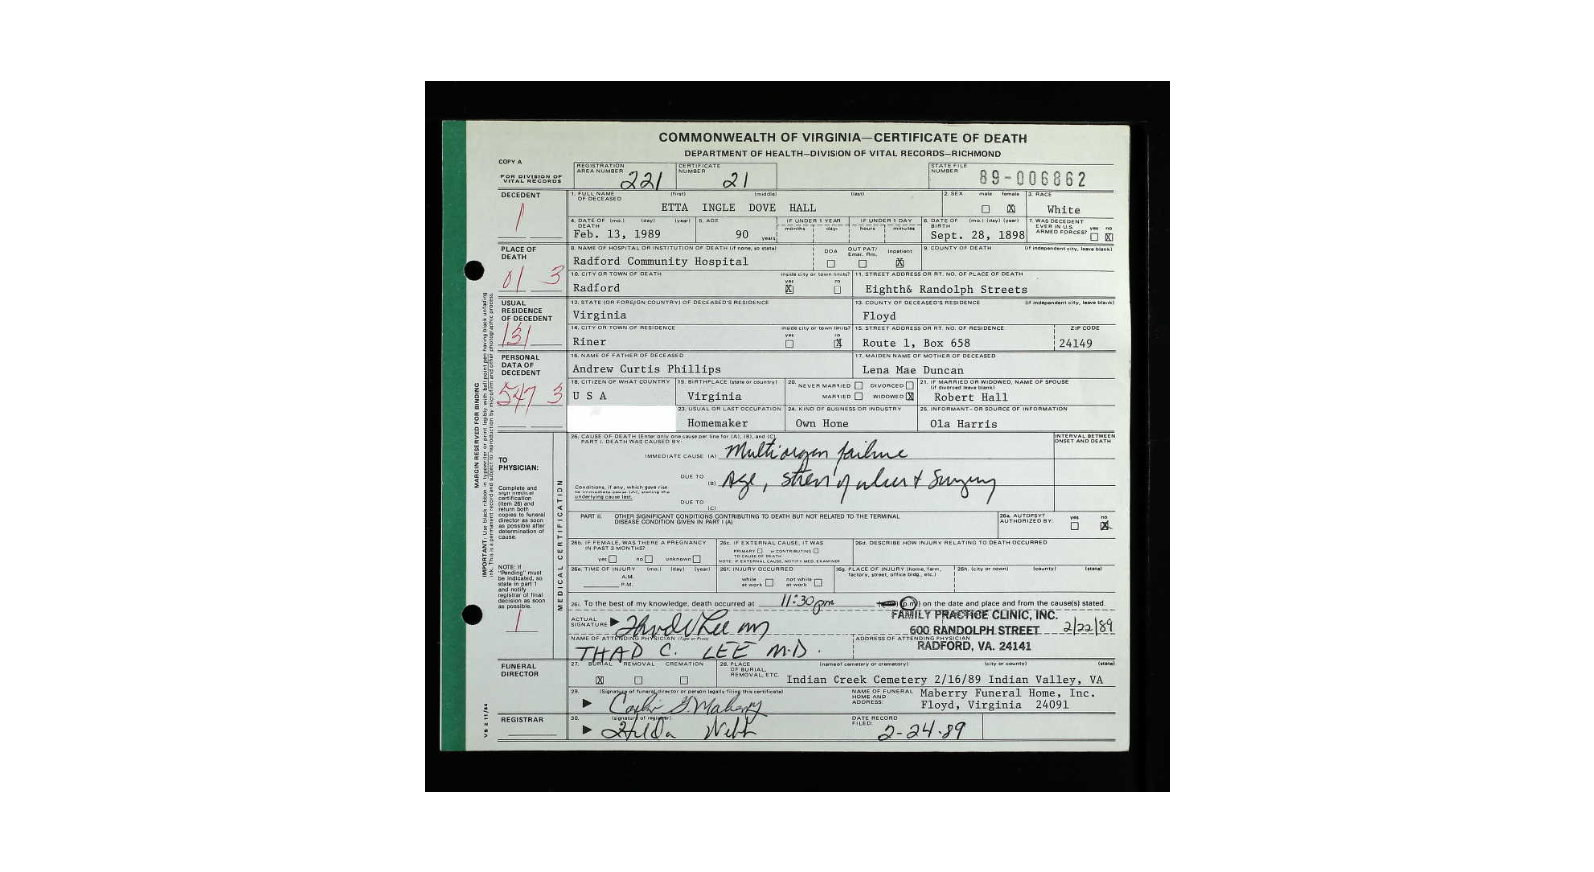 COMMONWEALTH OF VIRGINIA—CERTIFICATE OF DEATH
DEPARTMENT OF HEALTH—DIVISION OF VITAL RECORDS—RICHMOND
COPY A
FOR DIVISION OF VITAL RECORDS
REGISTRATION AREA NUMBER 221
CERTIFICATE NUMBER 21
STATE FILE NUMBER 89-006862
DECEDENT
1
1. FULL NAME OF DECEASED (first) (middle) (last)
ETTA INGLE DOVE HALL
2. SEX male female X
3. RACE
White
4. DATE OF DEATH (mo.) (day) (year)
Feb. 13, 1989
5. AGE
90 years
IF UNDER 1 YEAR months days
IF UNDER 1 DAY hours minutes
6. DATE OF BIRTH (mo.) (day) (year)
Sept. 28, 1898
7. WAS DECEDENT EVER IN U.S. ARMED FORCES? yes no X
PLACE OF DEATH
01 3
8. NAME OF HOSPITAL OR INSTITUTION OF DEATH (if none, so state)
Radford Community Hospital
DOA OUT PAT/ Emer. Rm. Inpatient X
9. COUNTY OF DEATH (if independent city, leave blank)
10. CITY OR TOWN OF DEATH inside city or town limits? yes no
Radford X
11. STREET ADDRESS OR RT. NO. OF PLACE OF DEATH
Eighth& Randolph Streets
USUAL RESIDENCE OF DECEDENT
131
12. STATE (OR FOREIGN COUNTRY) OF DECEASED'S RESIDENCE
Virginia
13. COUNTY OF DECEASED'S RESIDENCE (if independent city, leave blank)
Floyd
14. CITY OR TOWN OF RESIDENCE inside city or town limits? yes no
Riner X
15. STREET ADDRESS OR RT. NO. OF RESIDENCE ZIP CODE
Route 1, Box 658 24149
PERSONAL DATA OF DECEDENT
547 3
16. NAME OF FATHER OF DECEASED
Andrew Curtis Phillips
17. MAIDEN NAME OF MOTHER OF DECEASED
Lena Mae Duncan
18. CITIZEN OF WHAT COUNTRY
U S A
19. BIRTHPLACE (state or country)
Virginia
20. NEVER MARRIED DIVORCED
MARRIED WIDOWED X
21. IF MARRIED OR WIDOWED, NAME OF SPOUSE (if divorced leave blank)
Robert Hall
23. USUAL OR LAST OCCUPATION
Homemaker
24. KIND OF BUSINESS OR INDUSTRY
Own Hone
25. INFORMANT- OR SOURCE OF INFORMATION
Ola Harris
MARGIN RESERVED FOR BINDING
MEDICAL CERTIFICATION
TO PHYSICIAN:
Complete and sign medical certification (item 26) and return both copies to funeral director as soon as possible after determination of cause.
NOTE: If "Pending" must be indicated, so state in part 1 and notify registrar of final decision as soon as possible.
1
26. CAUSE OF DEATH (Enter only one cause per line for (A), (B), and (C))
PART I. DEATH WAS CAUSED BY:
INTERVAL BETWEEN ONSET AND DEATH
IMMEDIATE CAUSE (A) Multiorgan failure
DUE TO
(B) Age, stress of ulcer & Surgery
Conditions, if any, which gave rise to immediate cause (A), stating the underlying cause last.
DUE TO
(C)
PART II. OTHER SIGNIFICANT CONDITIONS CONTRIBUTING TO DEATH BUT NOT RELATED TO THE TERMINAL DISEASE CONDITION GIVEN IN PART I (A)
26a. AUTOPSY AUTHORIZED BY: yes no X
26b. IF FEMALE, WAS THERE A PREGNANCY IN PAST 3 MONTHS?
yes no unknown
26c. IF EXTERNAL CAUSE, IT WAS
PRIMARY or CONTRIBUTING
TO CAUSE OF DEATH
NOTE: IF EXTERNAL CAUSE, NOTIFY MED. EXAMINER
26d. DESCRIBE HOW INJURY RELATING TO DEATH OCCURRED
26e. TIME OF INJURY (mo.) (day) (year)
A.M.
P.M.
26f. INJURY OCCURRED
while at work not while at work
26g. PLACE OF INJURY (home, farm, factory, street, office bldg., etc.)
26h. (city or town) (county) (state)
26i. To the best of my knowledge, death occurred at 11:30 pm (p.m.) on the date and place and from the cause(s) stated.
ACTUAL SIGNATURE Thad C Lee MD
FAMILY PRACTICE CLINIC, INC.
600 RANDOLPH STREET
RADFORD, VA. 24141
2/22/89
NAME OF ATTENDING PHYSICIAN (Type or Print)
THAD C. LEE M.D.
ADDRESS OF ATTENDING PHYSICIAN
FUNERAL DIRECTOR
27. BURIAL REMOVAL CREMATION
X
28. PLACE OF BURIAL, REMOVAL, ETC. (name of cemetery or crematory) (city or county) (state)
Indian Creek Cemetery 2/16/89 Indian Valley, VA
29. (Signature of funeral director or person legally filing this certificate)
NAME OF FUNERAL HOME AND ADDRESS:
Maberry Funeral Home, Inc.
Floyd, Virginia 24091
REGISTRAR
30. (signature of registrar)
Hilda Webb
DATE RECORD FILED:
2-24-89
VS 2 11/84